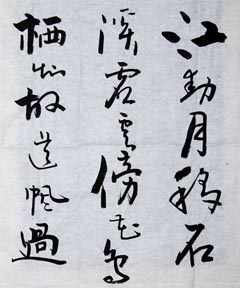 江動月移石
溪虛雲傍花鳥
栖知故道帆過